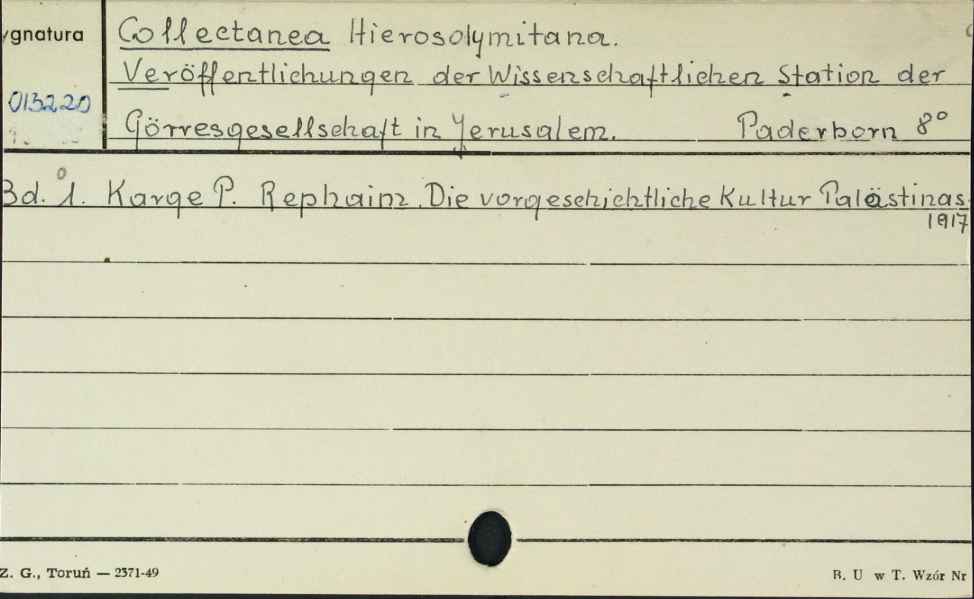 ygnatura
Collectanea Hierosolymitana.
Veröffentlichungen der Wissenschaftlichen Station der
013220
Görresgesellschaft in Jerusalem. Paderborn 8°
Bd. 1. Karge P. Rephaim. Die vorgeschichtliche Kultur Palästinas.
1917
Z. G., Toruń — 2371-49
B. U w T. Wzór Nr